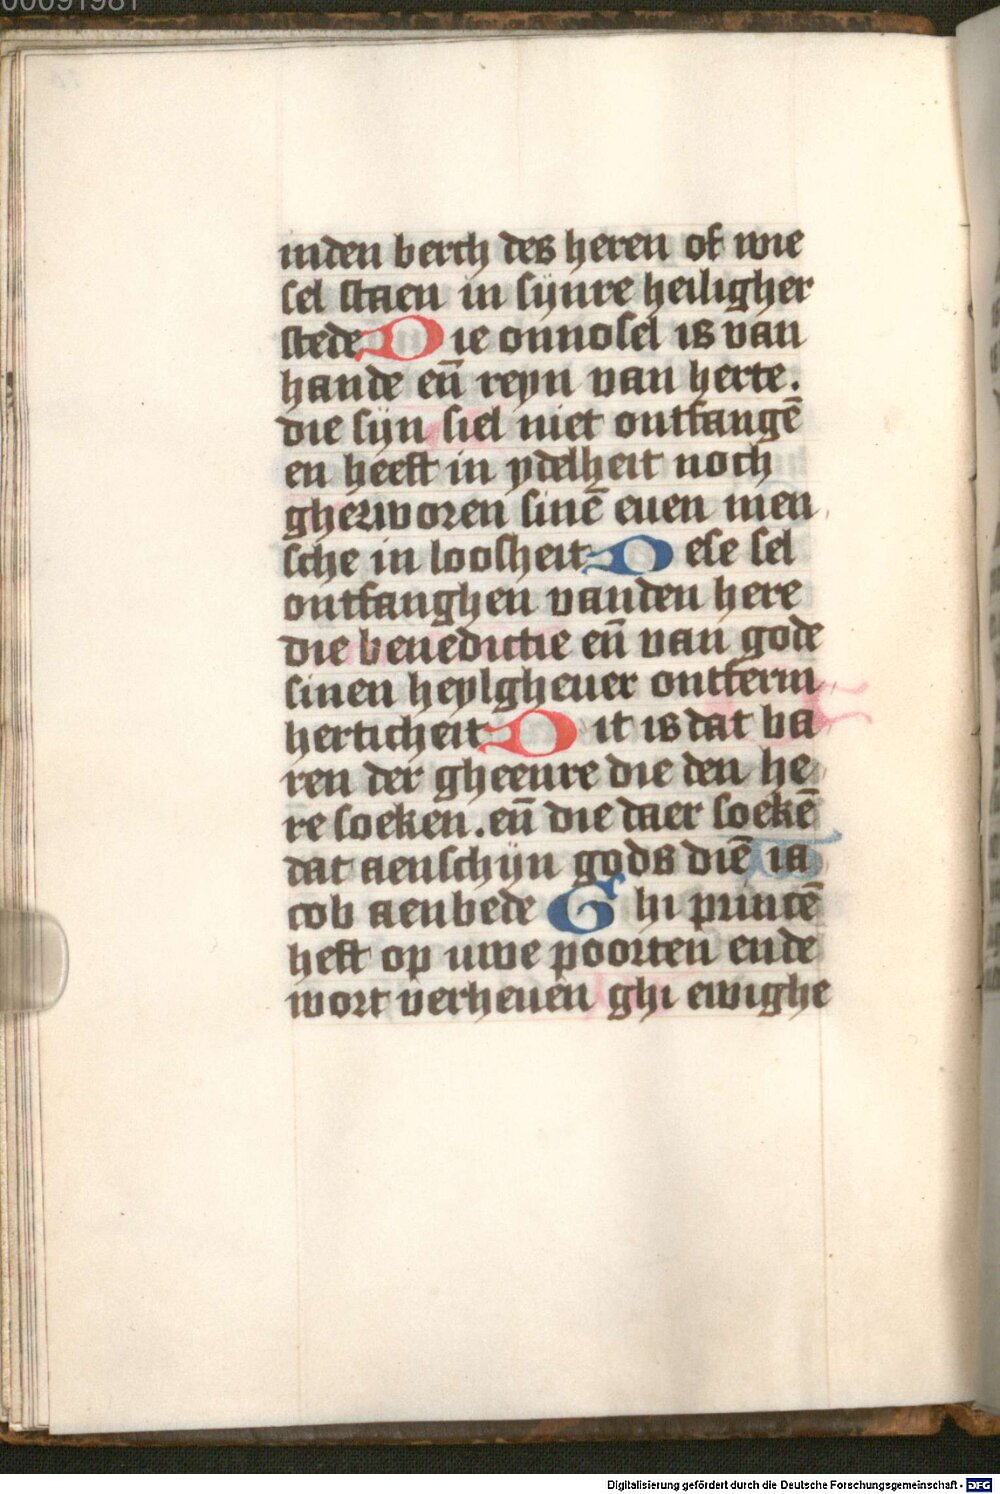 00091981
inden berch des heren of wie
sel staen in sijnre heiligher
stede Die onnosel is van
hande en̄ reyn van herte.
die sijn siel niet ontfangē
en heeft in ydelheit noch
ghezworen sinē euen men
sche in loosheit Dese sel
ontfanghen vanden here
die benedictie en̄ van gode
sinen heylgheuer ontferm
herticheit Dit is dat ba
ren der gheenre die den he
re soeken. en̄ die daer soekē
dat aenschijn gods diē ia
cob aenbede Ghi princē
heft op uwe poorten ende
wort verheuen ghi ewighe
Digitalisierung gefördert durch die Deutsche Forschungsgemeinschaft - DFG